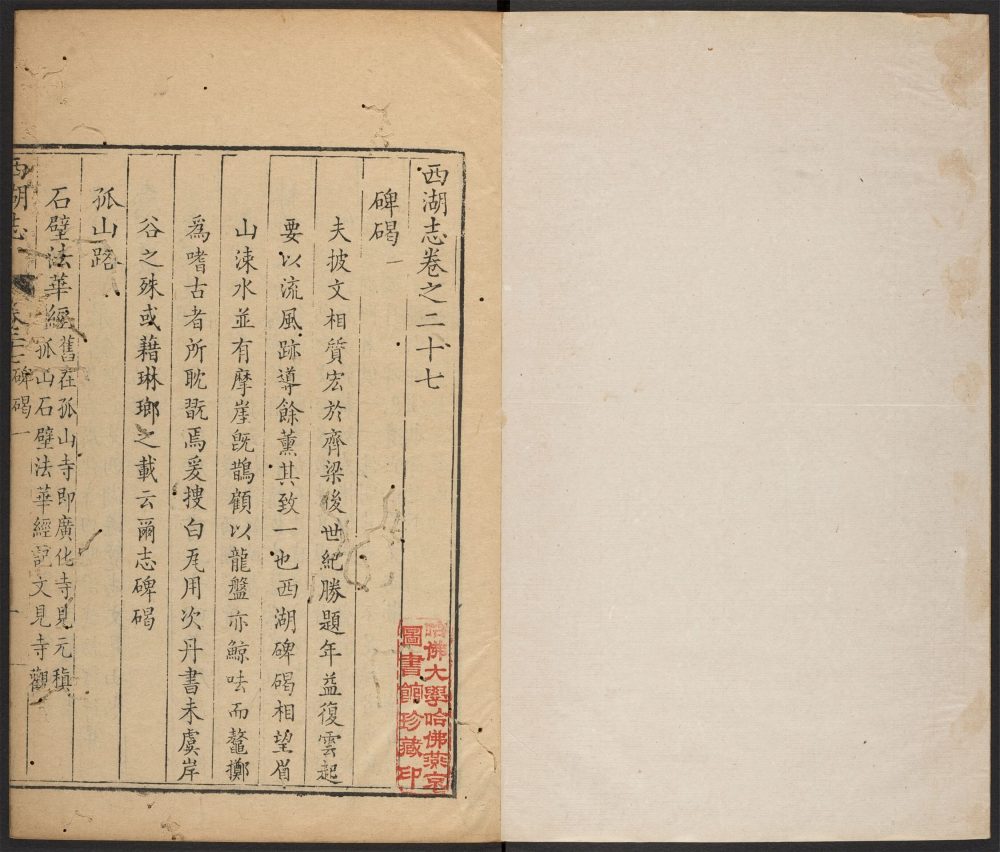 西湖志卷之二十七
碑碣一
夫披文相質宏於齊梁後世紀勝題年益復雲起
要以流風跡導餘薰其致一也西湖碑碣相望眉
山涑水並有摩崖旣鵲顧以龍盤亦鯨呿而鼇擲
爲嗜古者所耽翫焉爰搜白瓦用次丹書未虞岸
谷之殊或藉琳瑯之載云爾志碑碣
孤山路
石壁法華經舊在孤山寺即廣化寺見元稹
孤山石壁法華經記文見寺觀
西湖志
卷二十七碑碣一
哈佛大學哈佛燕京
圖書館珍藏印